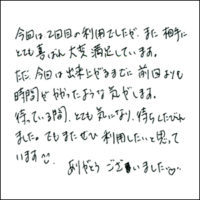 今回は2回目の利用でしたが、また相手に
とても喜ばれ大変満足しています。
ただ今回は出来上がるまでに前回よりも
時間がかかったような気がします。
待っている間、とても気になり、待ちくたびれ
ました。でもまたぜひ利用したいと思って
います
ありがとうございました